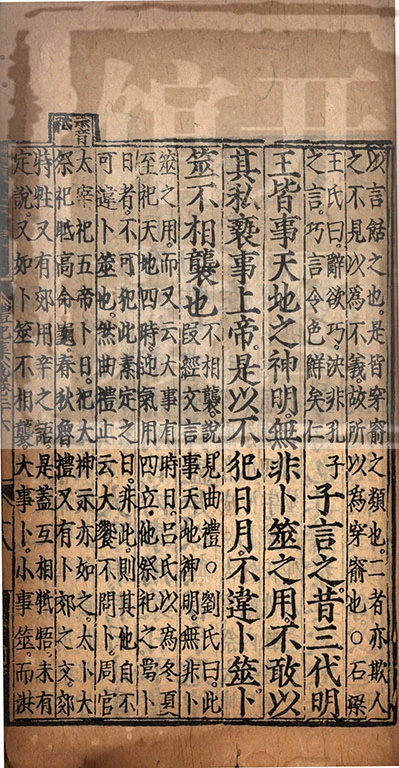 以言餂之也。是皆穿窬之類也。二者亦欺人
之不見以爲不義。故所以爲穿窬也。○石梁
王氏曰。辭欲巧。決非孔子
之言。巧言令色鮮矣仁
子言之。昔三代明
王皆事天地之神明。無非卜筮之用。不敢以
其私褻事上帝。是以不犯日月。不違卜筮。卜
筮不相襲也
不相襲。說見曲禮。○劉氏曰。此
段經文言事天地神明。無非卜
筮之用。而又云大事有時日。呂氏以爲冬夏
至祀天地。四時迎氣用四立。他祭祀之當卜
日者。不可犯此素定之日。非此。則其他自不
可違卜筮也。然曲禮正云大饗不問卜。周官
太宰祀五帝卜日。祀大神示亦如之。太卜大
祭祀眂高命龜。春秋魯禮又有卜郊之文。郊
特牲又有郊用辛之語。是蓋互相牴牾。未有
定說。又如卜筮不相襲。大事卜。小事筮。而洪